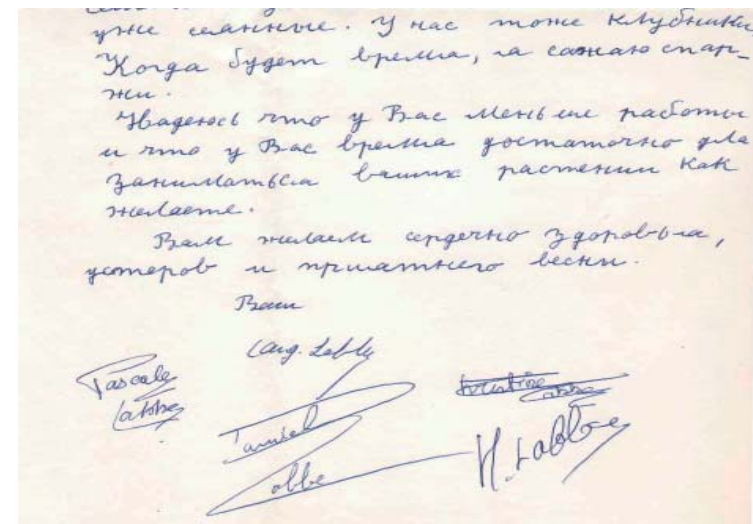 уже сеанные. У нас тоже клубники
Когда будет время, я сажаю спар-
жи.
Надеюсь что у Вас меньше работы
и что у Вас время достаточно для
заниматься ваших растении как
желаете.
Вам желаем сердечно здоровья,
и приатнего весни.
Ваш
Pascale
Labbe
Daniel
Labbe
H. Labbe